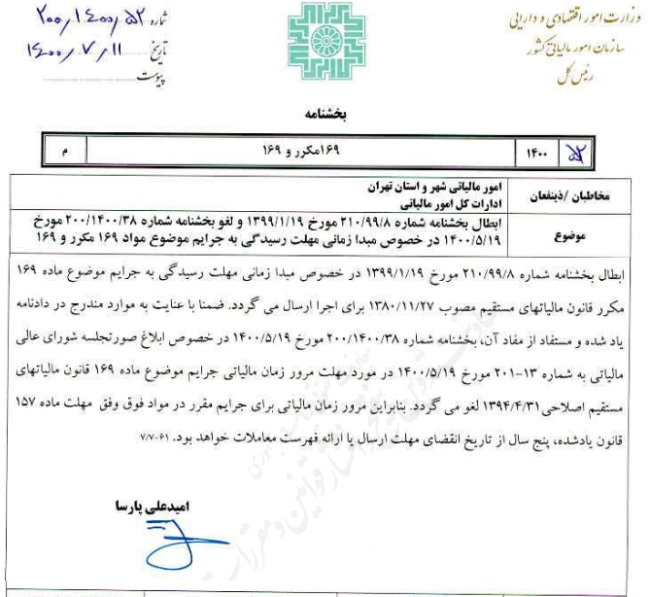 وزارت امور اقتصادی و دارایی
سازمان امور مالیاتی کشور
رئیس کل
شماره ۲۰۰/۱۴۰۰/۵۲
تاریخ ۱۴۰۰/۷/۱۱
پیوست
بخشنامه
۵۲ ۱۴۰۰ ۱۶۹مکرر و ۱۶۹ م
مخاطبان /ذینفعان
امور مالیاتی شهر و استان تهران
ادارات کل امور مالیاتی
موضوع
ابطال بخشنامه شماره ۲۱۰/۹۹/۸ مورخ ۱۳۹۹/۱/۱۹ و لغو بخشنامه شماره ۲۰۰/۱۴۰۰/۳۸ مورخ
۱۴۰۰/۵/۱۹ در خصوص مبدا زمانی مهلت رسیدگی به جرایم موضوع مواد ۱۶۹ مکرر و ۱۶۹
ابطال بخشنامه شماره ۲۱۰/۹۹/۸ مورخ ۱۳۹۹/۱/۱۹ در خصوص مبدا زمانی مهلت رسیدگی به جرایم موضوع ماده ۱۶۹
مکرر قانون مالیاتهای مستقیم مصوب ۱۳۸۰/۱۱/۲۷ برای اجرا ارسال می گردد. ضمنا با عنایت به موارد مندرج در دادنامه
یاد شده و مستفاد از مفاد آن، بخشنامه شماره ۲۰۰/۱۴۰۰/۳۸ مورخ ۱۴۰۰/۵/۱۹ در خصوص ابلاغ صورتجلسه شورای عالی
مالیاتی به شماره ۱۳-۲۰۱ مورخ ۱۴۰۰/۵/۱۹ در مورد مهلت مرور زمان مالیاتی جرایم موضوع ماده ۱۶۹ قانون مالیاتهای
مستقیم اصلاحی ۱۳۹۴/۴/۳۱ لغو می گردد. بنابراین مرور زمان مالیاتی برای جرایم مقرر در مواد فوق وفق مهلت ماده ۱۵۷
قانون یادشده، پنج سال از تاریخ انقضای مهلت ارسال یا ارائه فهرست معاملات خواهد بود. ۷/۷-۶۱
امیدعلی پارسا